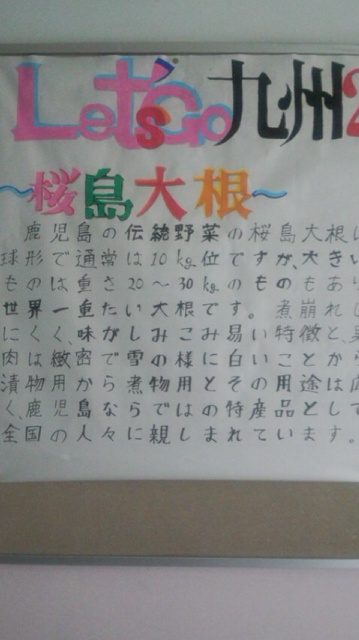 Let's Go 九州2
～桜島大根～
鹿児島の伝統野菜の桜島大根は
球形で通常は10kg位ですが、大きい
ものは重さ20～30kgのものもあり
世界一重たい大根です。煮崩れし
にくく、味がしみこみ易い特徴と、
肉は緻密で雪の様に白いことから
漬物用から煮物用とその用途は広
く、鹿児島ならではの特産品として
全国の人々に親しまれています。